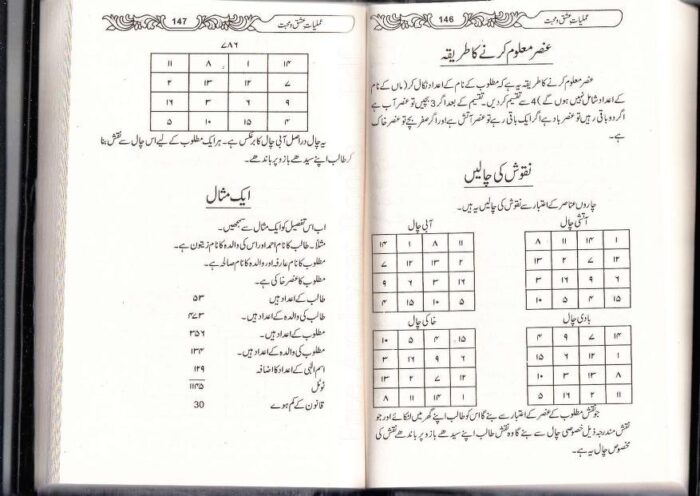 عملیات عشق و محبت 146
عنصر معلوم کرنے کا طریقہ
عنصر معلوم کرنے کا طریقہ یہ ہے کہ مطلوب کے نام کے اعداد نکال کر (ماں کے نام
کے اعداد شامل نہیں ہوں گے) 4 سے تقسیم کر دیں۔ تقسیم کے بعد اگر 3 بچیں تو عنصر آب ہے
اگر دو باقی رہیں تو عنصر باد ہے اگر ایک باقی رہے تو عنصر آتش ہے اور اگر صفر بچے تو عنصر خاک
ہے۔
نقوش کی چالیں
چاروں عناصر کے اعتبار سے نقوش کی چالیں یہ ہیں۔
آتشی چال
۱ ۱۴ ۱۱ ۸
۱۲ ۷ ۲ ۱۳
۶ ۹ ۱۶ ۳
۱۵ ۴ ۵ ۱۰
آبی چال
۱۱ ۸ ۱ ۱۴
۲ ۱۳ ۱۲ ۷
۱۶ ۳ ۶ ۹
۵ ۱۰ ۱۵ ۴
بادی چال
۱۴ ۷ ۹ ۴
۱ ۱۲ ۶ ۱۵
۸ ۱۳ ۳ ۱۰
۱۱ ۲ ۱۶ ۵
خاکی چال
۱۵ ۴ ۵ ۱۰
۶ ۹ ۱۶ ۳
۱۲ ۷ ۲ ۱۳
۱ ۱۴ ۱۱ ۸
جو نقش مطلوب کے عنصر کے اعتبار سے بنے گا اس کو طالب اپنے گھر میں لٹکائے اور جو
نقش مندرجہ ذیل خصوصی چال سے بنے گا وہ نقش طالب اپنے سیدھے بازو پر باندھے نقش کی
مخصوص چال یہ ہے۔
عملیات عشق و محبت 147
۷۸۶
۱۴ ۱ ۸ ۱۱
۷ ۱۲ ۱۳ ۲
۹ ۶ ۳ ۱۶
۴ ۱۵ ۱۰ ۵
یہ چال در اصل آبی چال کا برعکس ہے۔ ہر ایک مطلوب کے لیے اس چال سے نقش بنا
کر طالب اپنے سیدھے بازو پر باندھے۔
ایک مثال
اب اس تفصیل کو ایک مثال سے سمجھیں۔
مثلاً۔ طالب کا نام احمد اور اس کی والدہ کا نام زیتون ہے۔
مطلوب کا نام عارفہ اور والدہ کا نام صالحہ ہے۔
مطلوب کا عنصر خاکی ہے۔
طالب کے اعداد ہیں ۵۳
طالب کی والدہ کے اعداد ہیں۔ ۴۷۳
مطلوب کے اعداد ہیں۔ ۳۵۶
مطلوب کی والدہ کے اعداد ہیں۔ ۱۳۴
اسم الٰہی کے اعداد کا اضافہ ۱۲۹
ٹوٹل ۱۱۴۵
قانون کے کم ہوے 30